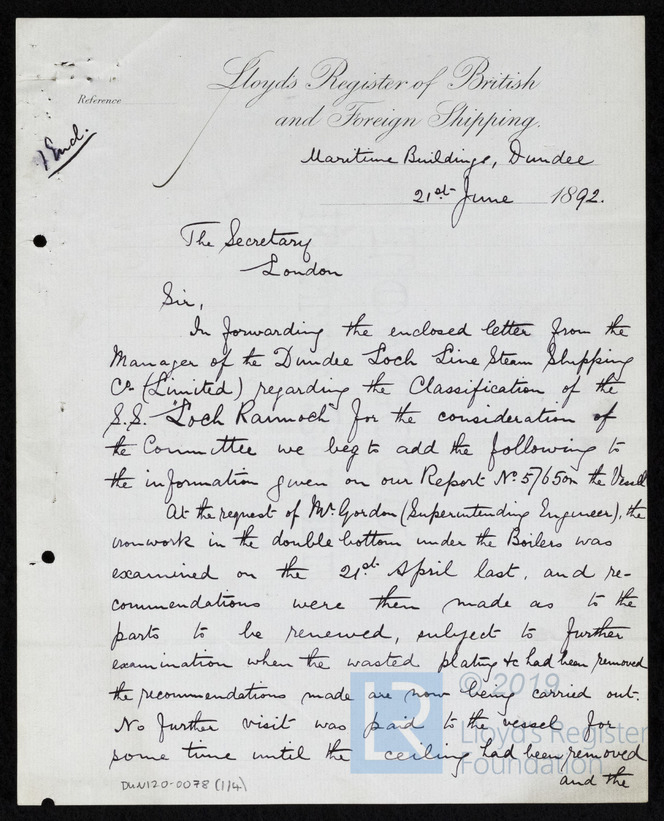 Lloyd's Register of British
and Foreign Shipping.
Reference
1 Encl.
Maritime Buildings, Dundee
21st June 1892.
The Secretary
London
Sir,
In forwarding the enclosed letter from the
Manager of the Dundee Loch Line Steam Shipping
Co (Limited) regarding the Classification of the
S.S. "Loch Rannoch" for the consideration of
the Committee we beg to add the following to
the information given on our Report No. 5765 on the Vessel
At the request of Mr. Gordon (Superintending Engineer), the
ironwork in the double bottom under the Boilers was
examined on the 21st April last, and re-
commendations were then made as to the
parts to be renewed, subject to further
examination when the wasted plating &c had been removed
the recommendations made are now being carried out.
No further visit was paid to the vessel for
some time until the ceiling had been removed
and the
DUN120-0078 (1/4)
LR
© 2019
Lloyd's Register
Foundation